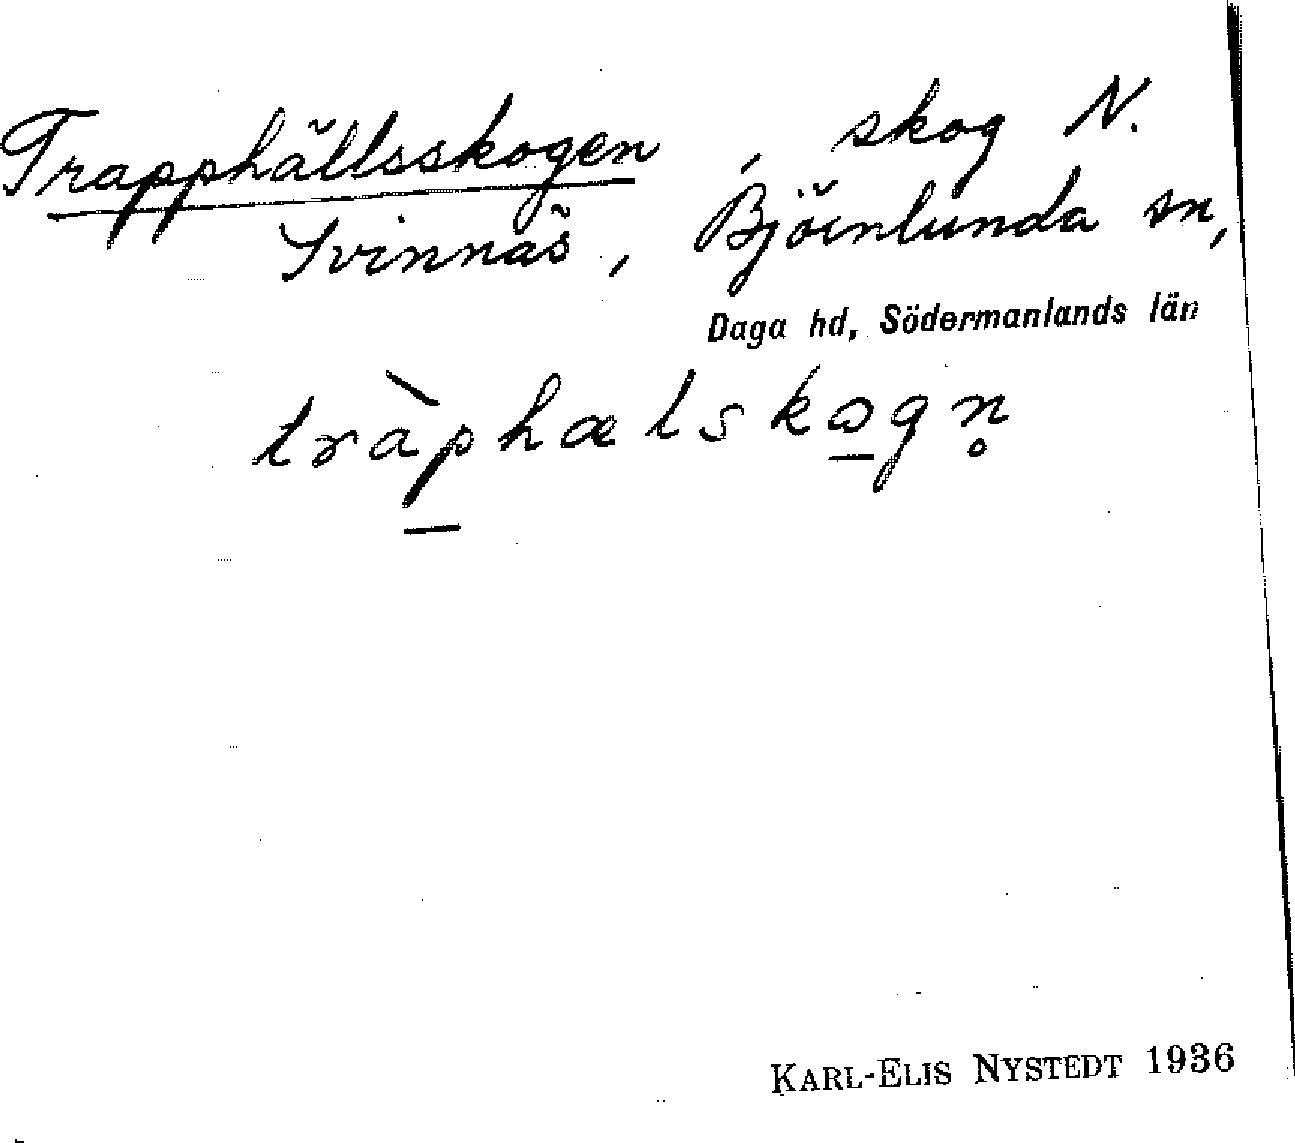 Trapphällsskogen, skog N.
Svinnäs, Björnlunda sn,
Daga hd, Södermanlands län
tràp̠hælsko̠gn̥
KARL-ELIS NYSTEDT 1936